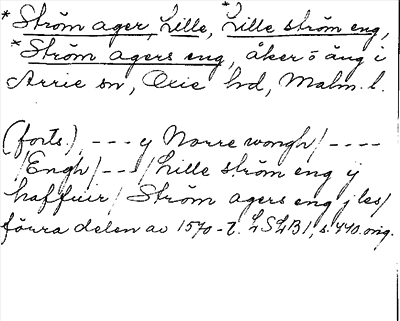 *Ström ager, Lille, *Lille ström eng,
*Ström agers eng, åker o äng i
Arrie sn, Oxie hd, Malm. l.
(forts.) --- y Norre wongh/ ----
/Engh/---/ Lille ström eng y
haffuir/ Ström agers eng j les/
förra delen av 1570-t. LSLB1, s. 440. orig.